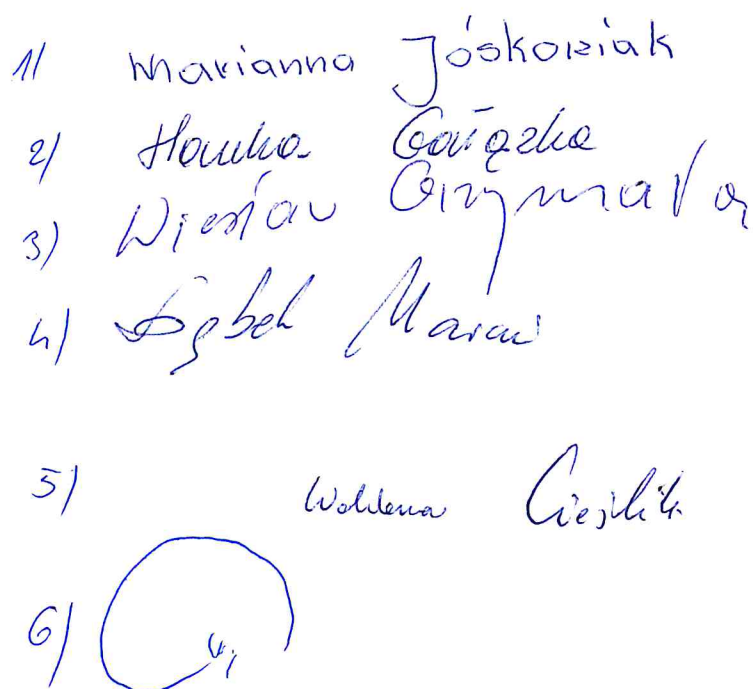 1) Marianna Jóskowiak
2) Hanka Gałązka
3) Wiesław Grzymała
4) Dębek Marian
5) Cieślik
6)